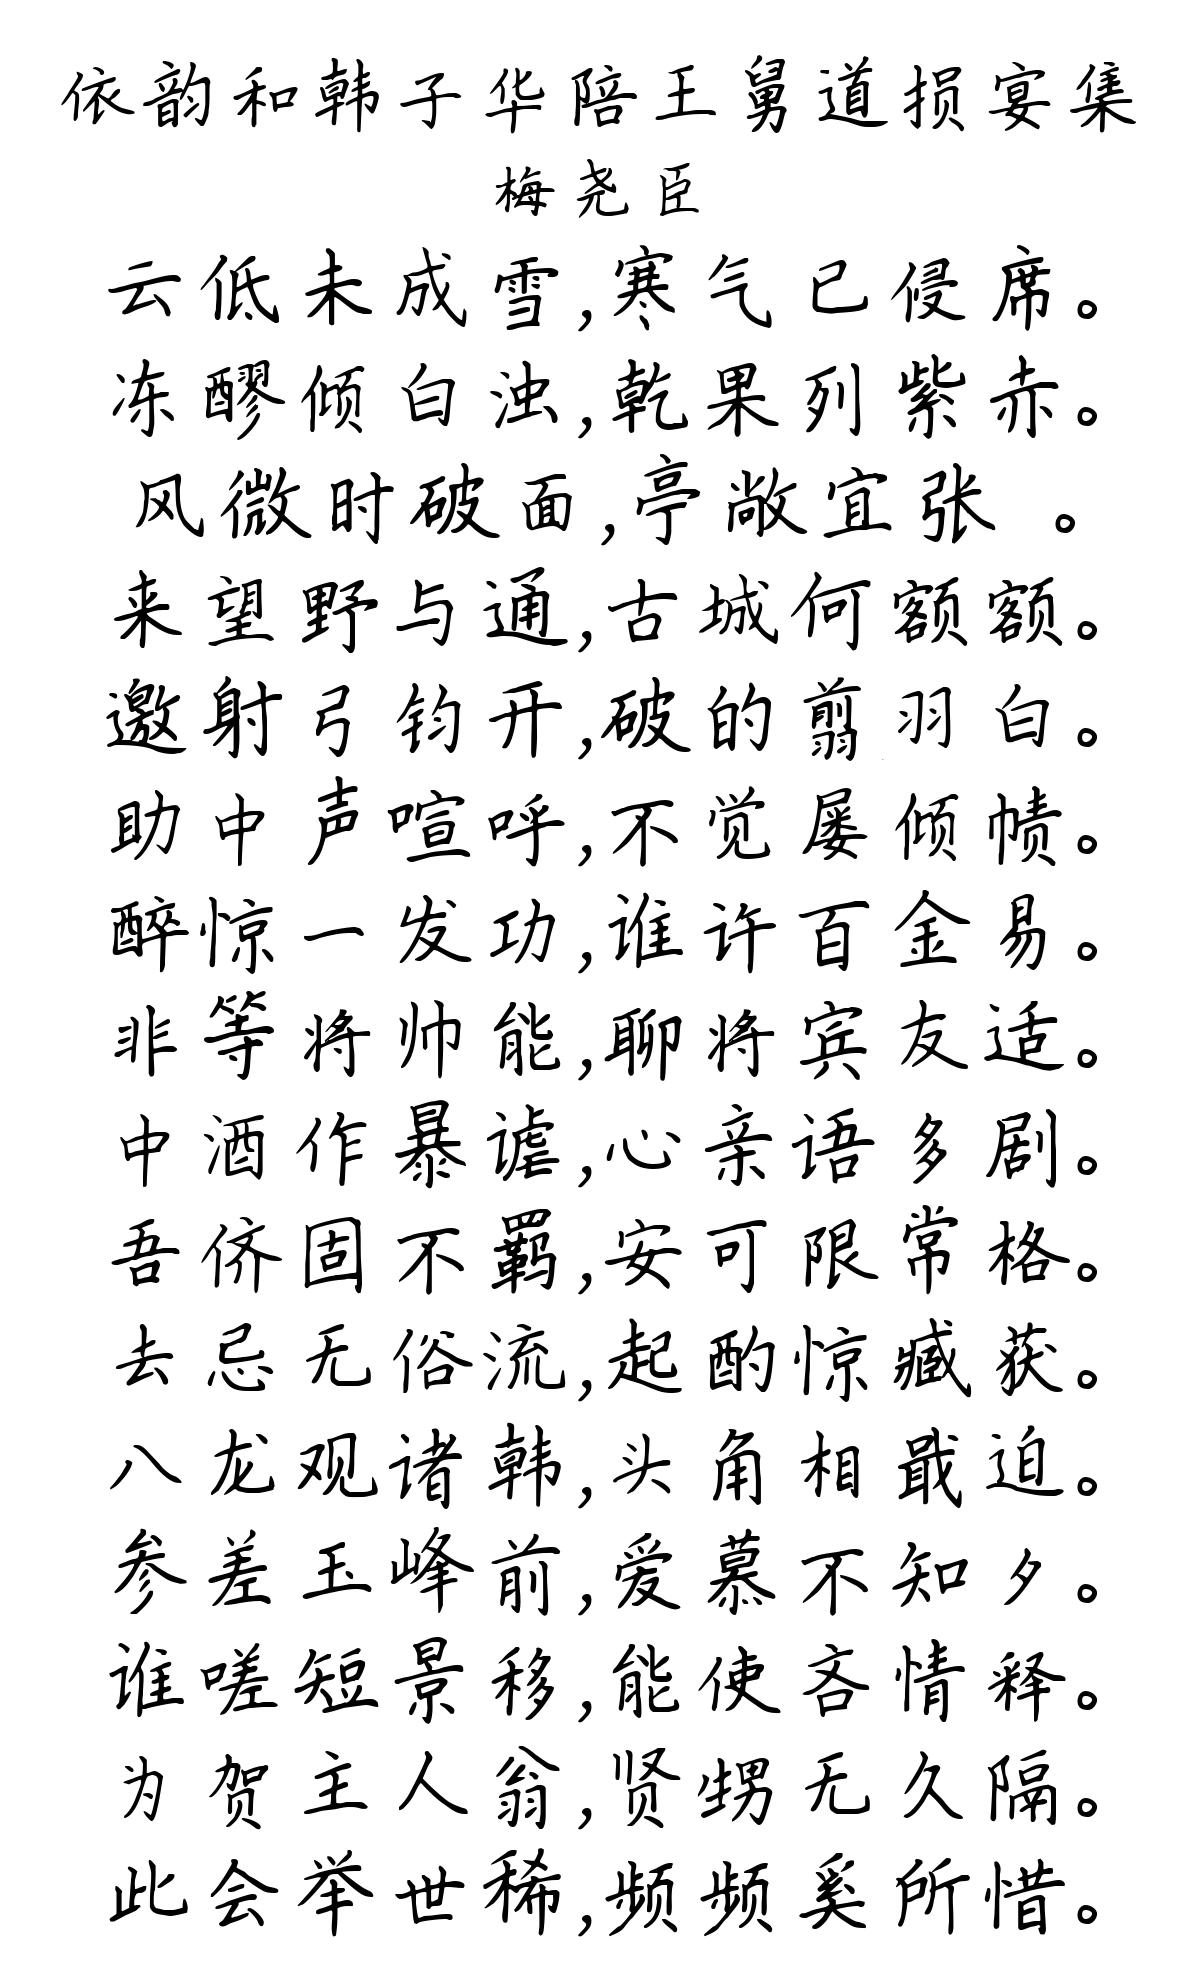 依韵和韩子华陪王舅道损宴集
梅尧臣
云低未成雪,寒气已侵席。
冻醪倾白浊,乾果列紫赤。
风微时破面,亭敞宜张 。
来望野与通,古城何额额。
邀射弓钧开,破的翦羽白。
助中声喧呼,不觉屡倾帻。
醉惊一发功,谁许百金易。
非等将帅能,聊将宾友适。
中酒作暴谑,心亲语多剧。
吾侪固不羁,安可限常格。
去忌无俗流,起酌惊臧获。
八龙观诸韩,头角相戢迫。
参差玉峰前,爱慕不知夕。
谁嗟短景移,能使吝情释。
为贺主人翁,贤甥无久隔。
此会举世稀,频频奚所惜。